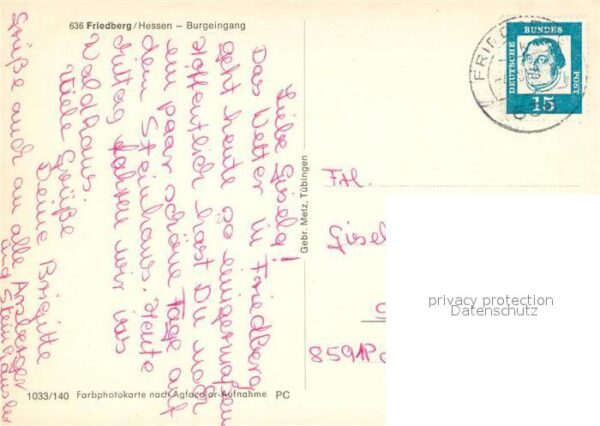 636 Friedberg/Hessen — Burgeingang
Liebe Gisela!
Das Wetter in Friedberg
geht heute so einigermaßen
Hoffentlich hast Du noch
ein paar schöne Tage auf
dem Steinhaus. Heute
Mittag fahren wir ins
Waldhaus.
Viele Grüße
Deine Brigitte
Grüße auch an alle Arzberger
und Steinhäusler
Gebr. Metz, Tübingen
DEUTSCHE BUNDES POST
15
FRIED
Frl.
Gisel
859
privacy protection
Datenschutz
1033/140 Farbphotokarte nach Agfacolor-Aufnahme PC